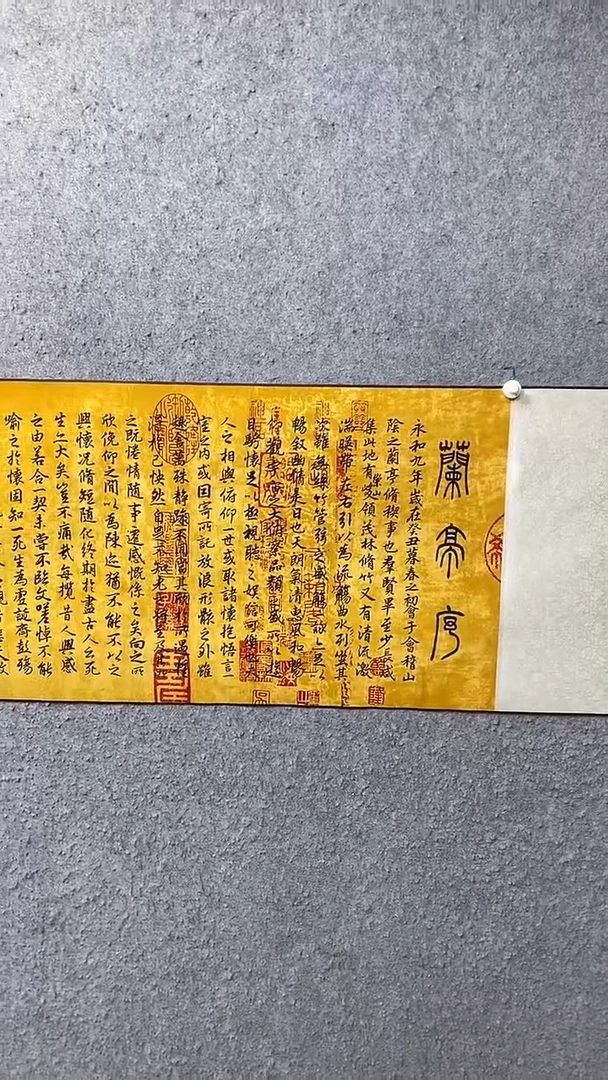 蘭亭序
永和九年歲在癸丑暮春之初會于會稽山
陰之蘭亭脩稧事也羣賢畢至少長咸
集此地有崇山峻領茂林脩竹又有清流激
湍暎帶左右引以為流觴曲水列坐其
次雖無絲竹管弦之盛一觴一詠亦足以
暢敘幽情是日也天朗氣清惠風和暢
仰觀宇宙之大俯察品類之盛所以遊
目騁懷足以極視聽之娛信可樂也夫
人之相與俯仰一世或取諸懷抱悟言一
室之內或因寄所託放浪形骸之外雖
萬殊靜躁不同當其欣於所遇
得於己快然自足不知老之將至及其
之既惓情隨事遷感慨係之矣向之所
欣俛仰之間以為陳迹猶不能不以之
興懷況脩短隨化終期於盡古人云死
生亦大矣豈不痛哉每攬昔人興感
之由若合一契未嘗不臨文嗟悼不能
喻之於懷固知一死生為虛誕齊彭殤